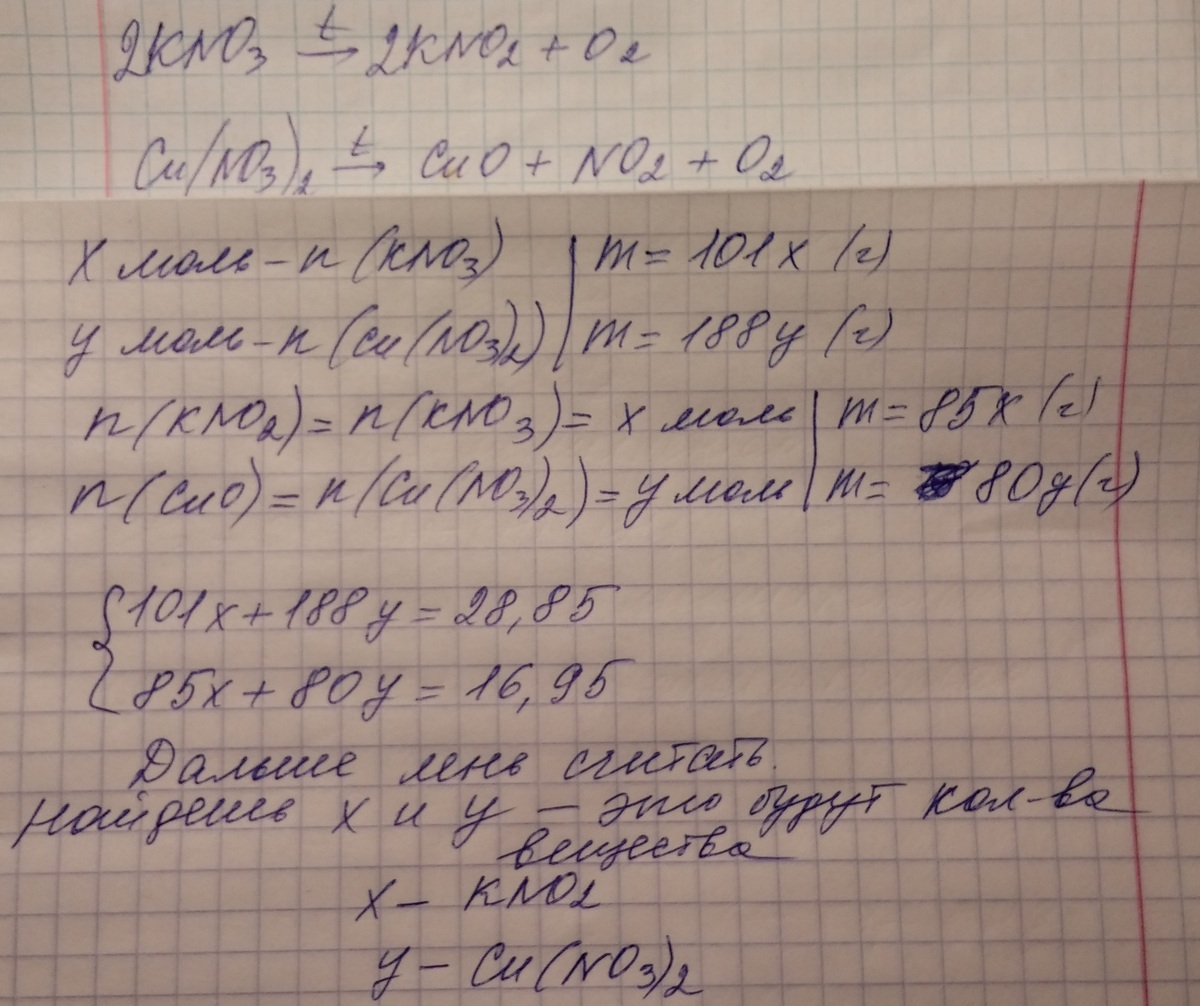 2KNO₃ t→ 2KNO₂ + O₂
Cu(NO₃)₂ t→ CuO + NO₂ + O₂
X моль - n(KNO₃) | m = 101x (г)
y моль - n(Cu(NO₃)₂) | m = 188y (г)
n(KNO₂) = n(KNO₃) = x моль | m = 85x (г)
n(CuO) = n(Cu(NO₃)₂) = y моль | m = 80y (г)
{101x + 188y = 28,85
85x + 80y = 16,95
Дальше лень считать.
Найдёшь x и y - это будут кол-ва
вещества
X - KNO₂
y - Cu(NO₃)₂